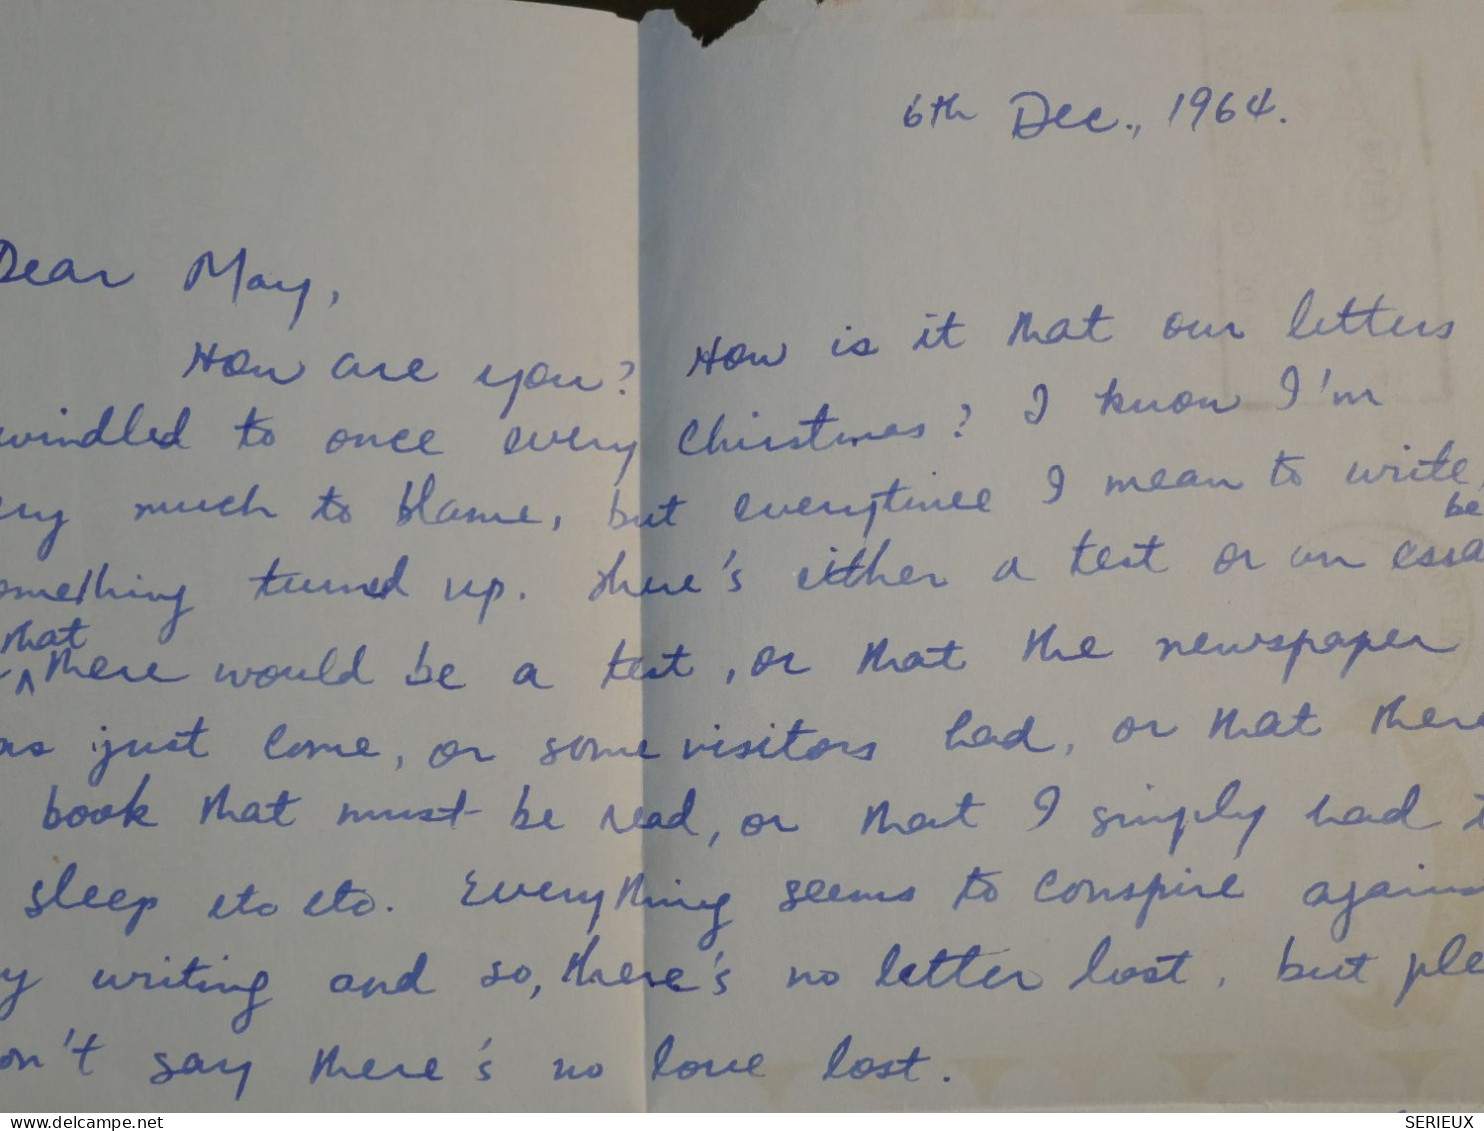 6th Dec., 1964.
Dear May,
How are you? How is it that our letters
windled to once every Christmas? I know I'm
ery much to blame, but everytime I mean to write,
be
omething turned up. There's either a test or an essa
that
^ there would be a test, or that the newspaper
as just come, or some visitors had, or that there
book that must be read, or that I simply had t
sleep etc etc. Everything seems to conspire agains
y writing and so, there's no letter lost, but ple
on't say there's no love lost.
www.delcampe.net
SERIEUX